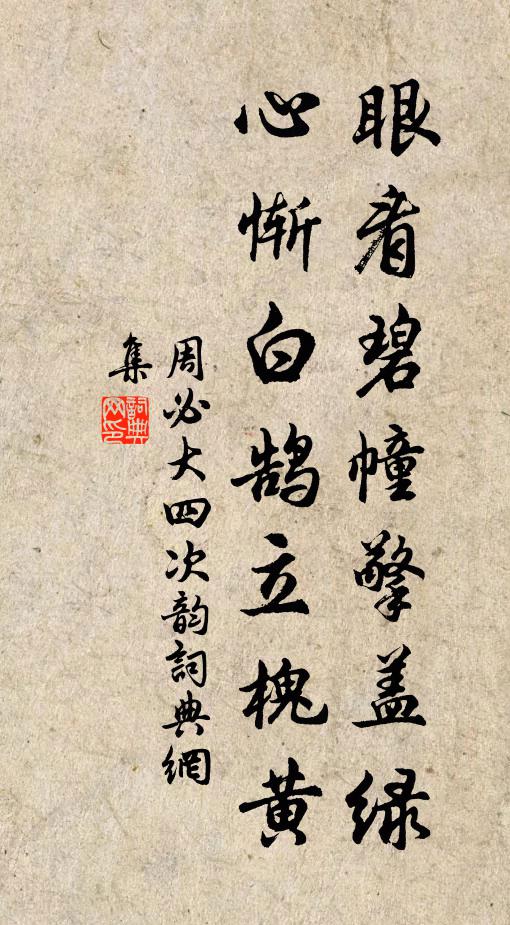 眼看碧幢擎盖绿
心惭白鹄立槐黄
周必大四次韵词典網
集
詞典
网印